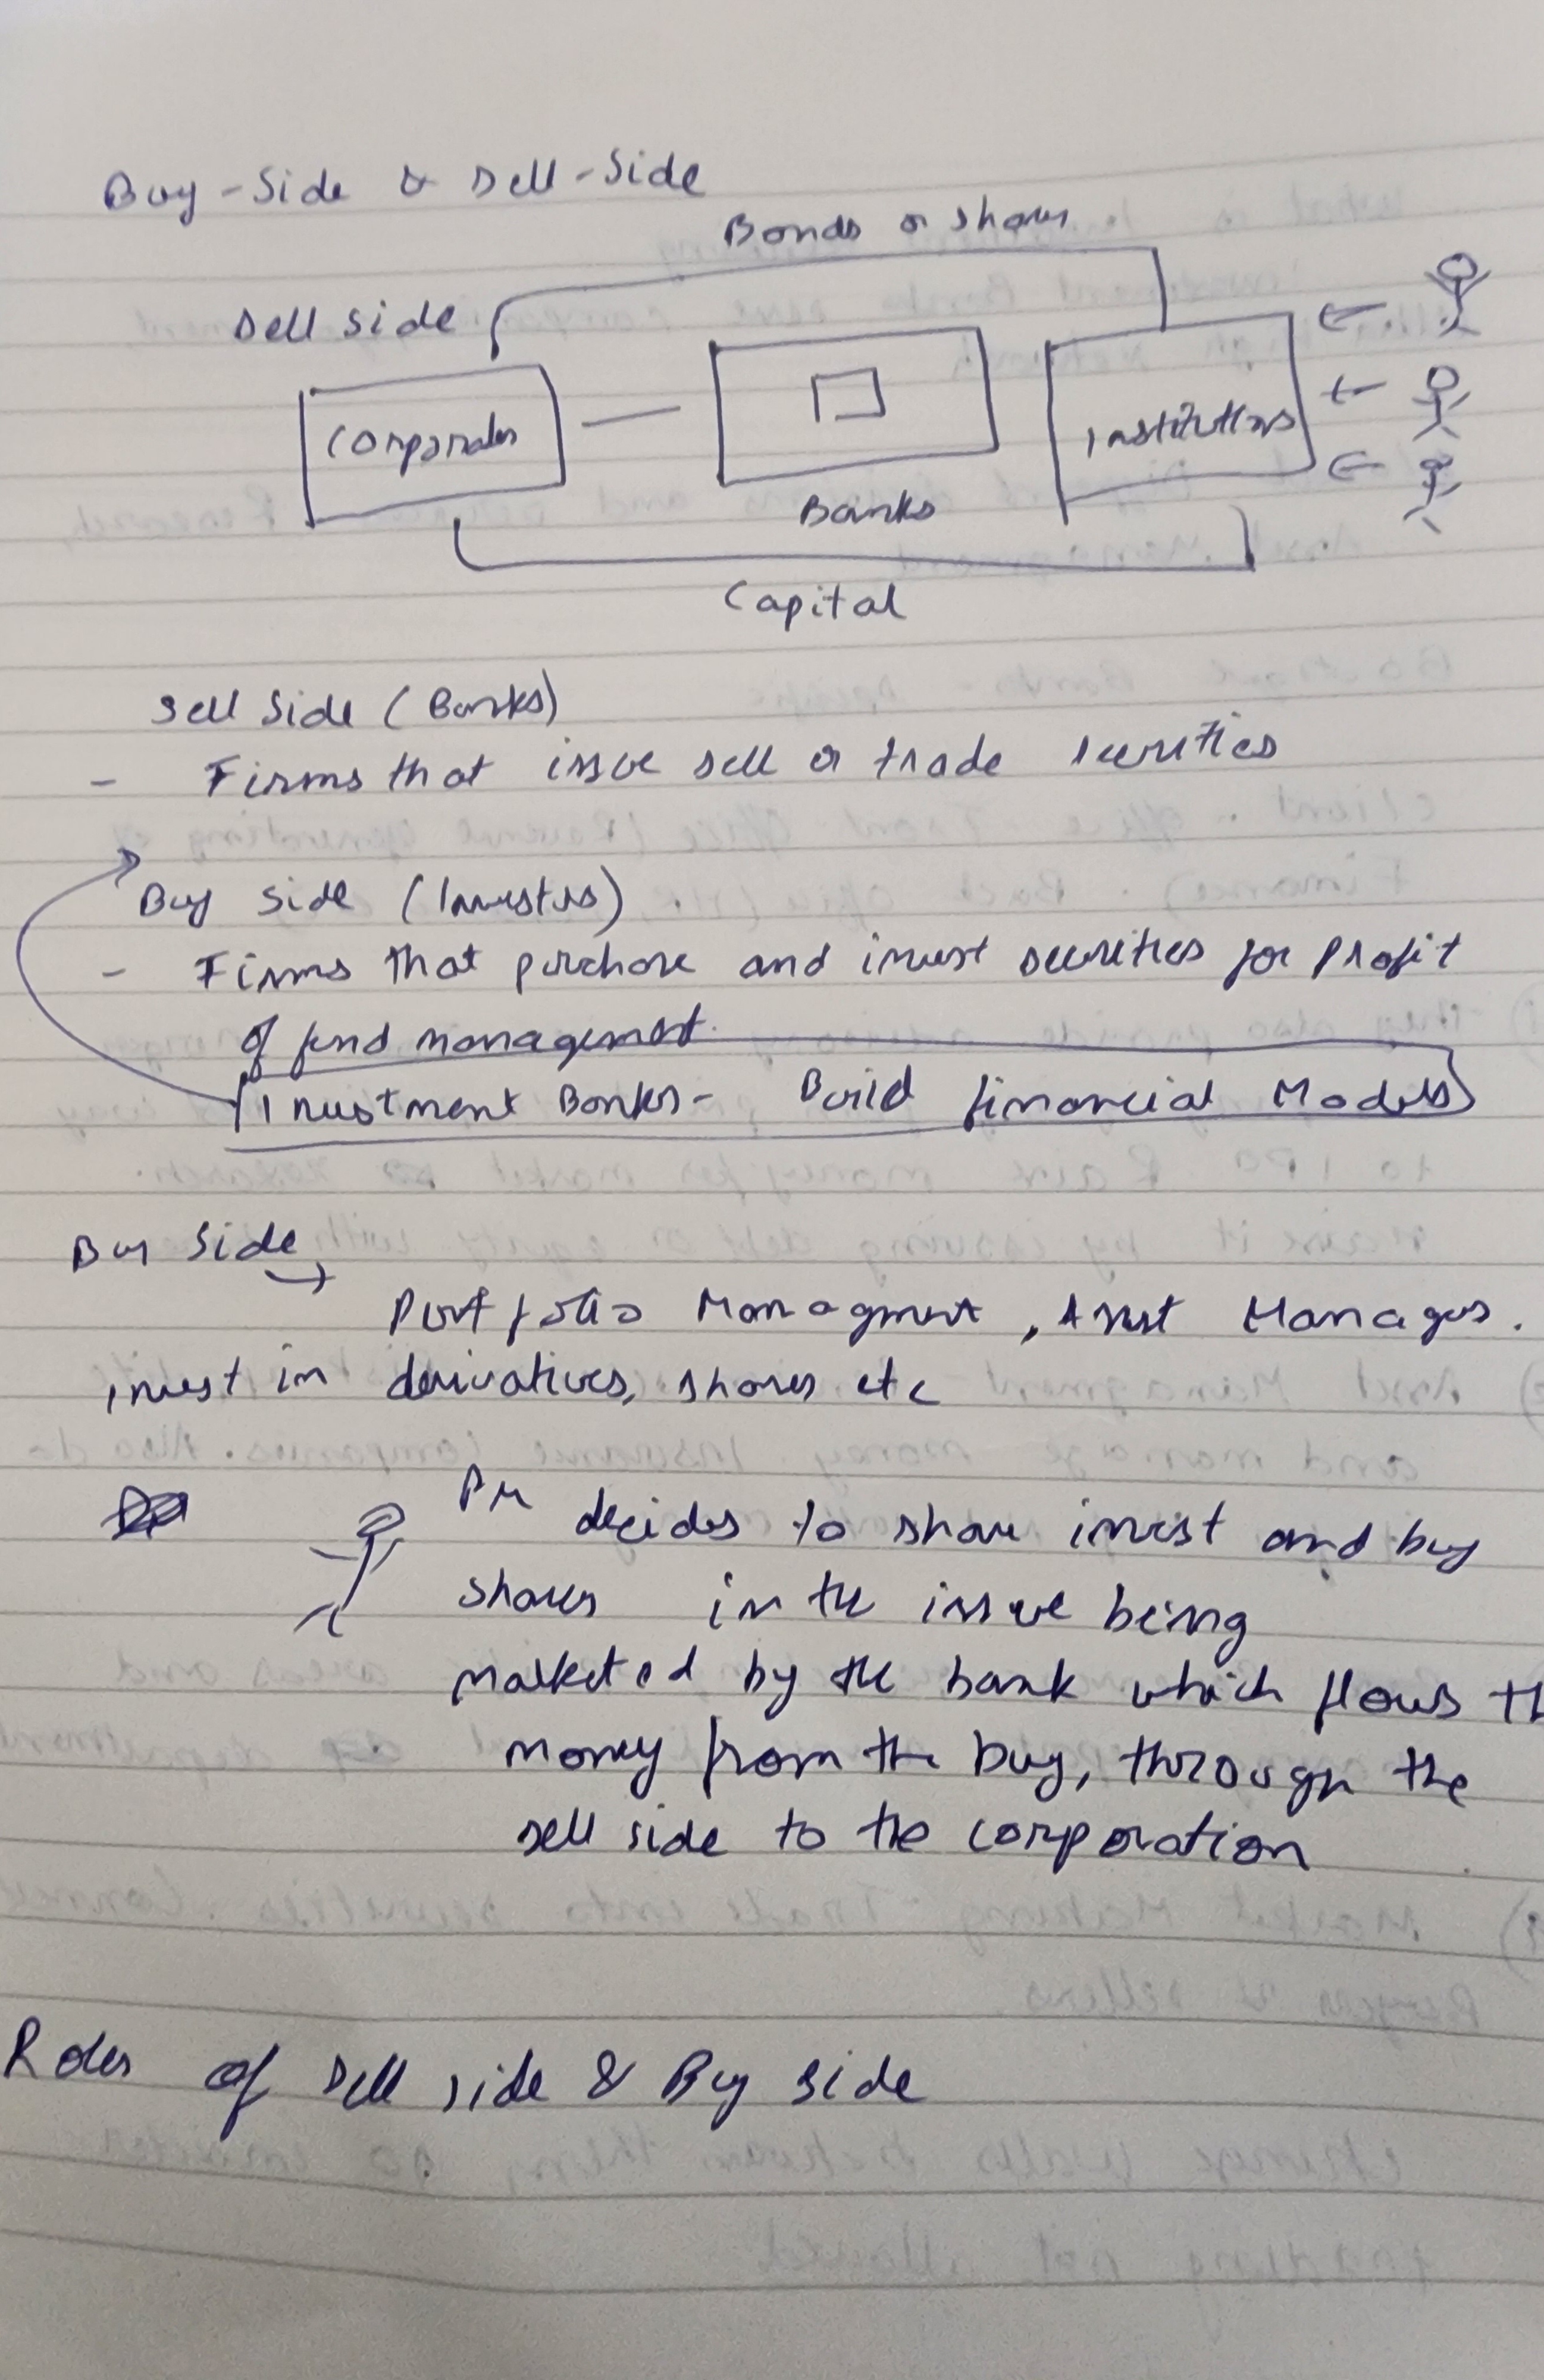 Buy-Side & Sell-Side
Bonds or shares
Sell side
Corporates
Institutions
Banks
Capital
Sell Side (Banks)
- Firms that issue sell or trade securities
Buy side (Investors)
- Firms that purchase and invest securities for profit
of fund management.
Investment Banks - Build financial Models
Buy Side →
Portfolio Managment, Asset Manages.
invest in derivatives, shares etc
PM decides to share invest and buy
shares in the issue being
marketed by the bank which flows
money from the buy, through the
sell side to the corporation
Roles of Sell side & Buy side